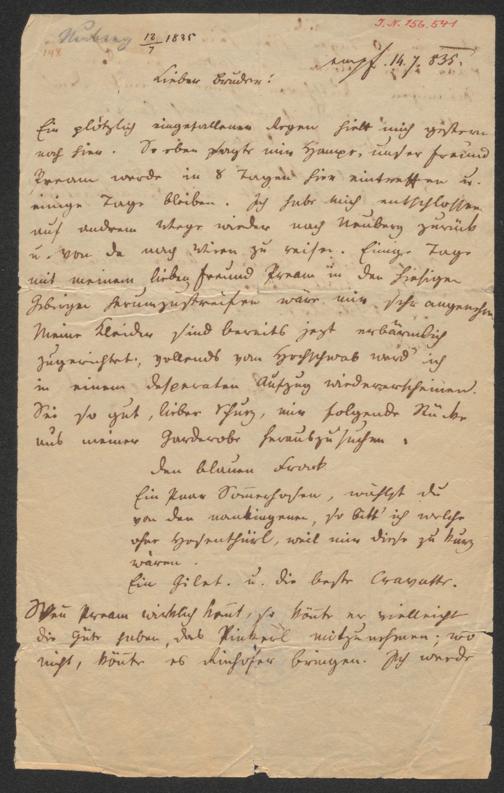 I.N. 156.541
Neuberg 12/7 1835
148
empf. 14.7. 835.
Lieber Bruder!
Ein plötzlich eingefallener Regen hielt mich gestern
noch hier. So eben sagte mir Hampe, unser Freund
werde in 8 Tagen hier eintreffen u.
einige Tage bleiben. Ich habe mich entschlossen
auf andrem Wege wieder nach Neuberg zurück
u. von da nach Wien zu reisen. Einige Tage
mit meinem lieben Freund in den hiesigen
Gebirgen herumzustreifen wäre mir sehr angenehm.
Meine Kleider sind bereits jezt erbärmlich
zugerichtet, vollends vom Hochschwab werd' ich
in einem desperaten Aufzug wiedererscheinen.
Sei so gut, lieber Schurz, mir folgende Stücke
aus meiner Garderobe herauszusuchen:
den blauen Frack
Ein Paar Sommerhosen, wählst du
von den nankingenen, so bitt' ich welche
ohne Hosenthürl, weil mir diese zu kurz
wären.
Ein Gilet. u. die beste Cravatte.
Wenn wirklich kömt, so könte er vielleicht
die Güte haben, das Pinkerl mitzunehmen; wo
nicht, könte es bringen. Ich werde